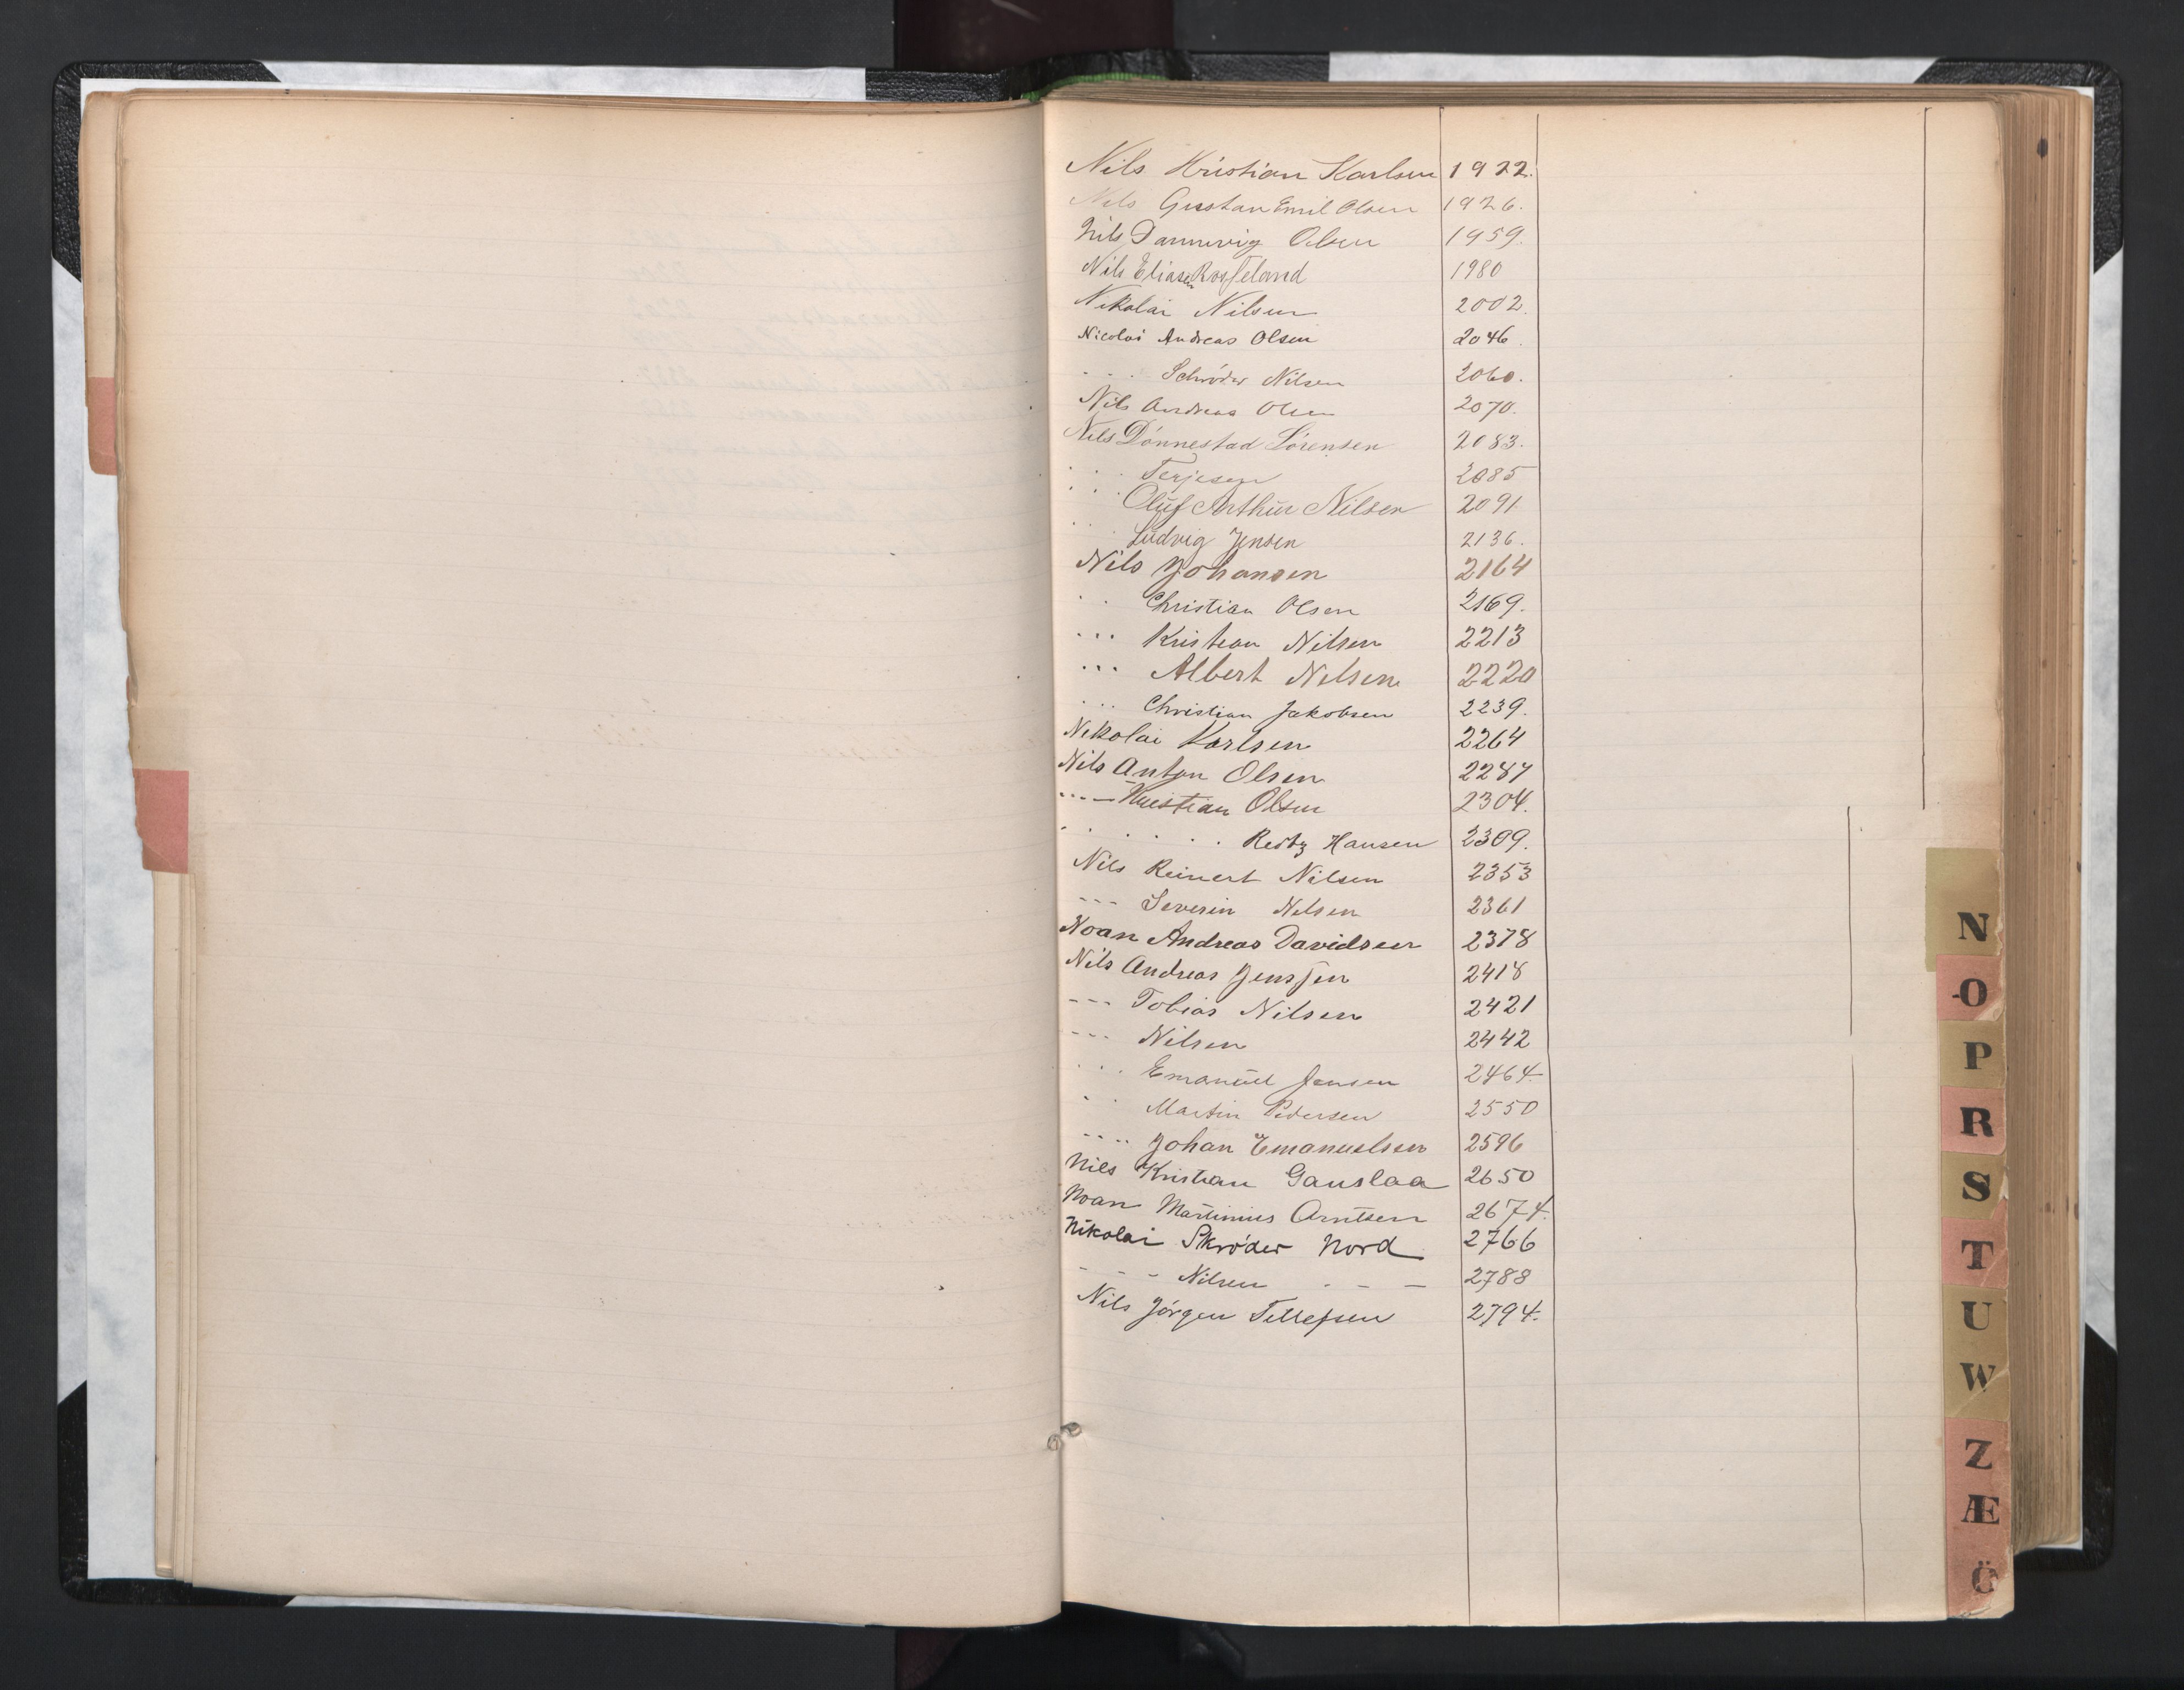 Nils Kristian Karlsen 1922.
Nils Gustav Emil Olsen 1926.
Nils Dannevig Olsen 1959.
Nils Eliasen Rosseland 1980
Nikolai Nilsen 2002.
Nicolai Andreas Olsen 2046.
" " " Schröder Nilsen 2060.
Nils Andreas Olsen 2070.
Nils Dönnestad Sörensen 2083.
" " " Terjesen 2085
" " " Oluf Arthur Nilsen 2091
" " Ludvig Jensen 2136.
Nils Johansen 2164
" " Christian Olsen 2169.
" " " Kristian Nilsen 2213
" " " Albert Nilsen 2220
" " " Christian Jakobsen 2239.
Nikolai Karlsen 2264
Nils Anton Olsen 2287
" " " — Kristian Olsen 2304.
" " " " " " Hansen 2309.
Nils Reinert Nilsen 2353
- - - Severin Nilsen 2361
Noan Andreas Davidsen 2378
Nils Andreas Jenssen 2418
- - - Tobias Nilsen 2421
- - - Nilsen 2442
" " " Emanuel Jensen 2464
" " Martin Pedersen 2550
" " " " Johan Emanuelsen 2596
Nils Kristian Gauslaa 2650
Noan Martinius Arntsen 2674.
Nikolai Skröder Nord 2766
- - - Nilsen - - - 2788
Nils Jörgen Tellefsen 2794.
N
O
P
R
S
T
U
W
Z
Æ
Ö